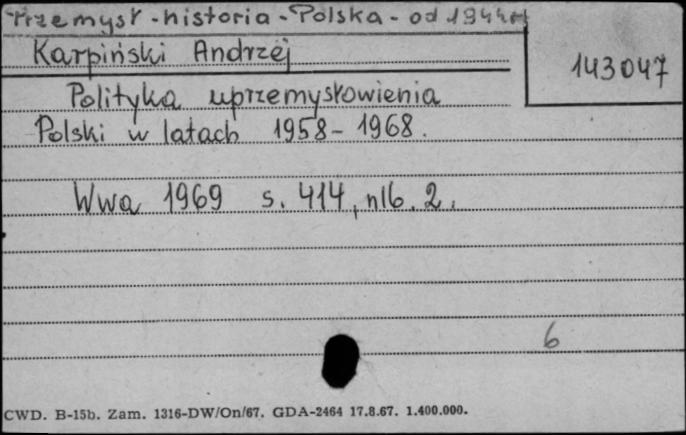 Przemysł - historia - Polska - od 1944 r
Karpiński Andrzej
143047
Polityka uprzemysłowienia
Polski w latach 1958 - 1968.
Wwa 1969 s. 414, nlb. 2.
6
CWD. B-15b. Zam. 1316-DW/On/67. GDA-2464 17.8.67. 1.400.000.